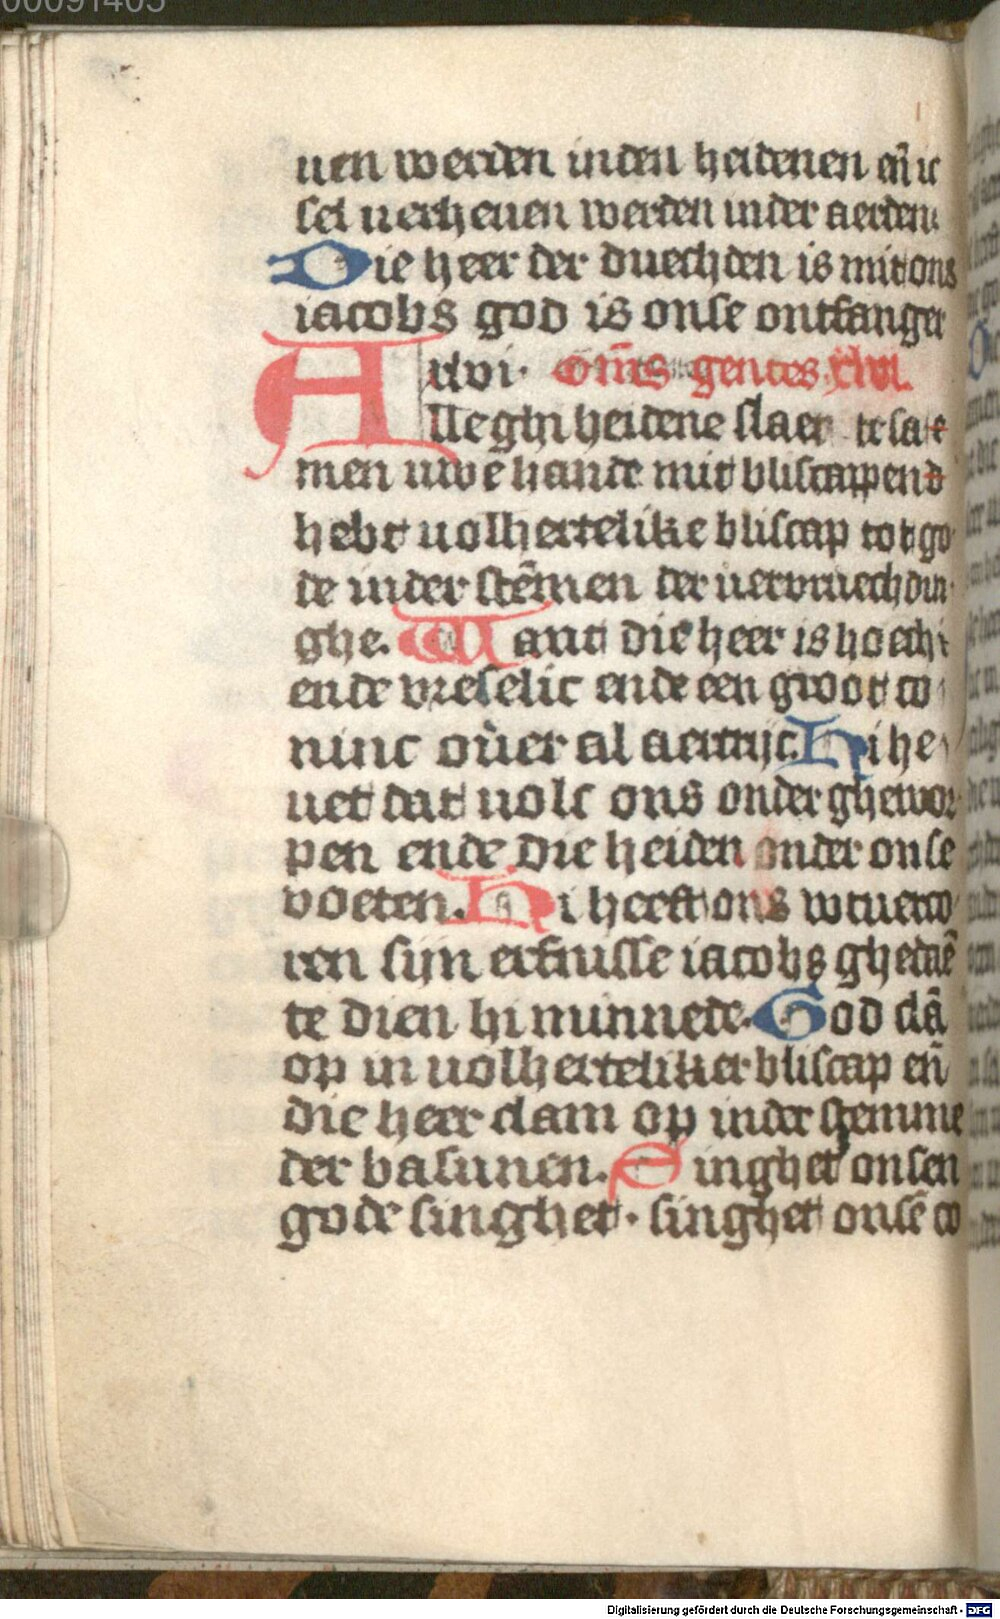 00091405
uen werden inden heidenen en̄ ic
sel uerheuen werden inder aerden
Die heer der duechden is mit ons
iacobs god is onse ontfanger
xlvi. Om̄s gentes. xlvi.
Alle ghi heidene slaet te sa
men uwe hande mit bliscappen
hebt uolhertelike bliscap tot go
de inder stēmen der uervruechdin
ghe. Want die heer is hoech
ende vreselic ende een groot co
ninc ouer al aertrijc. Hi he
uet dat uolc ons onder ghewor
pen ende die heiden onder onse
voeten. Hi heeft ons wtuerco
ren sijn erfnisse iacobs ghedaē
te dien hi minnede. God clā
op in uolherteliker bliscap en̄
die heer clam op inder stemme
der basunen. Singhet onsen
gode singhet. singhet onsē co
Digitalisierung gefördert durch die Deutsche Forschungsgemeinschaft - DFG